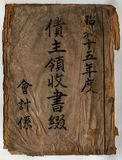 昭和十五年度
債主領收書綴
會計係